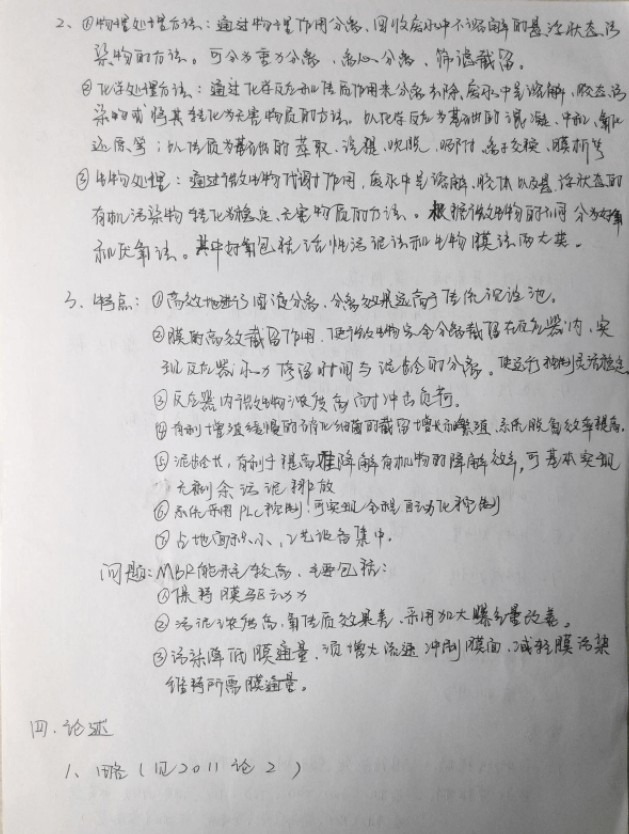 2、①物理处理方法：通过物理作用分离、回收废水中不溶解的悬浮状态污
染物的方法。可分为重力分离、离心分离、筛滤截留。
②化学处理方法：通过化学反应和传质作用来分离去除废水中呈溶解、胶态污
染物或将其转化为无害物质的方法。以化学反应为基础的混凝、中和、氧化
还原等；以传质为基础的萃取、汽提、吹脱、吸附、离子交换、膜析等
③生物处理：通过微生物代谢作用，废水中呈溶解、胶体以及悬浮状态的
有机污染物转化为稳定、无害物质的方法。根据微生物的不同分为好氧
和厌氧法。其中好氧包括活性污泥法和生物膜法两大类。
3、特点：①高效地进行固液分离，分离效果远高于传统沉淀池。
②膜的高效截留作用，使微生物完全分离截留在反应器内，实
现反应器水力停留时间与泥龄的分离。使运行控制灵活稳定
③反应器内微生物浓度高，耐冲击负荷。
④有利增殖缓慢的硝化细菌的截留增长和繁殖，系统脱氮效率提高。
⑤泥龄长，有利于提高难降解有机物的降解效率，可基本实现
无剩余污泥排放
⑥系统采用PLC控制，可实现全程自动化控制
⑦占地面积小，工艺设备集中。
问题：MBR能耗较高，主要包括：
①保持膜驱动力
②污泥浓度高，氧传质效果差，采用加大曝气量改善。
③污染降低膜通量，须增大流速冲刷膜面，减轻膜污染
维持所需膜通量。
四、论述
1、略（见2011论2）